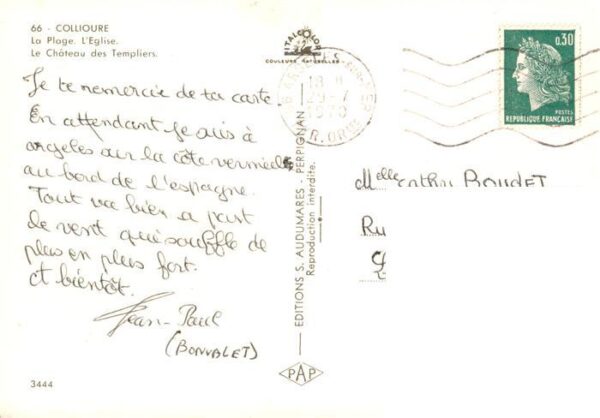 66 - COLLIOURE
La Plage. L'Eglise.
Le Château des Templiers.
ITALCOLOR
COULEURS NATURELLES
18 H
29-7
1970
P. ORles
0,30
POSTES
REPUBLIQUE FRANÇAISE
Je te remercie de ta carte.
En attendant je suis à
argeles sur la côte vermeille
au bord de l'espagne.
Tout va bien a part
de vent qui souffle de
plus en plus fort.
et bientôt.
Jean-Paul
(BONVALET)
EDITIONS S. AUDUMARES - PERPIGNAN
Reproduction interdite.
Melle Cathy BOUDET
Ru
3444
PAP